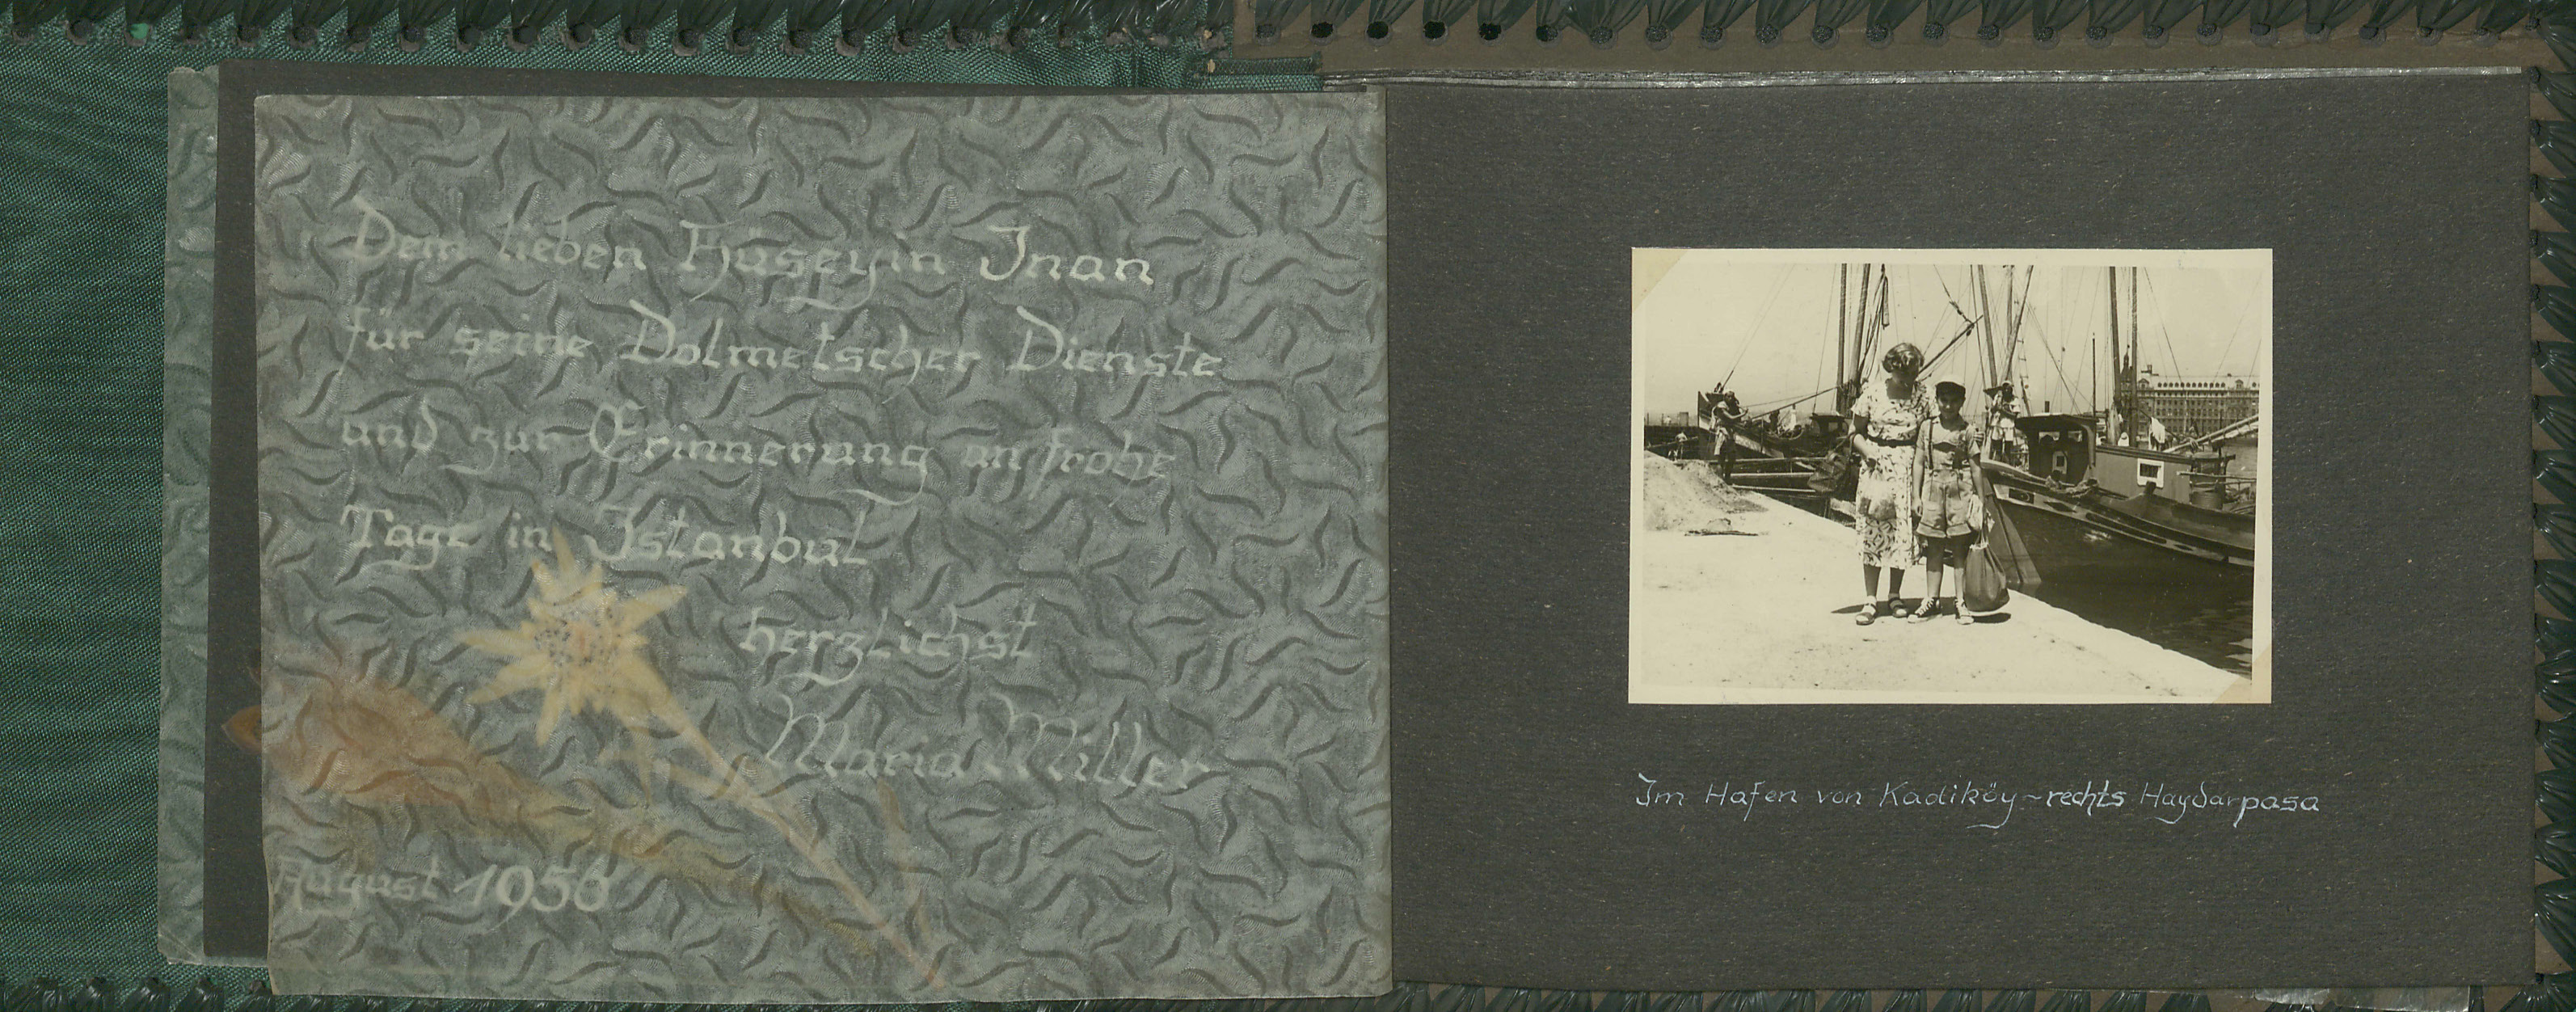 Dem lieben Hüseyin Inan
für seine Dolmetscher Dienste
und zur Erinnerung an frohe
Tage in Istanbul
herzlichst
Maria Miller
August 1956
Im Hafen von Kadiköy - rechts Haydarpasa